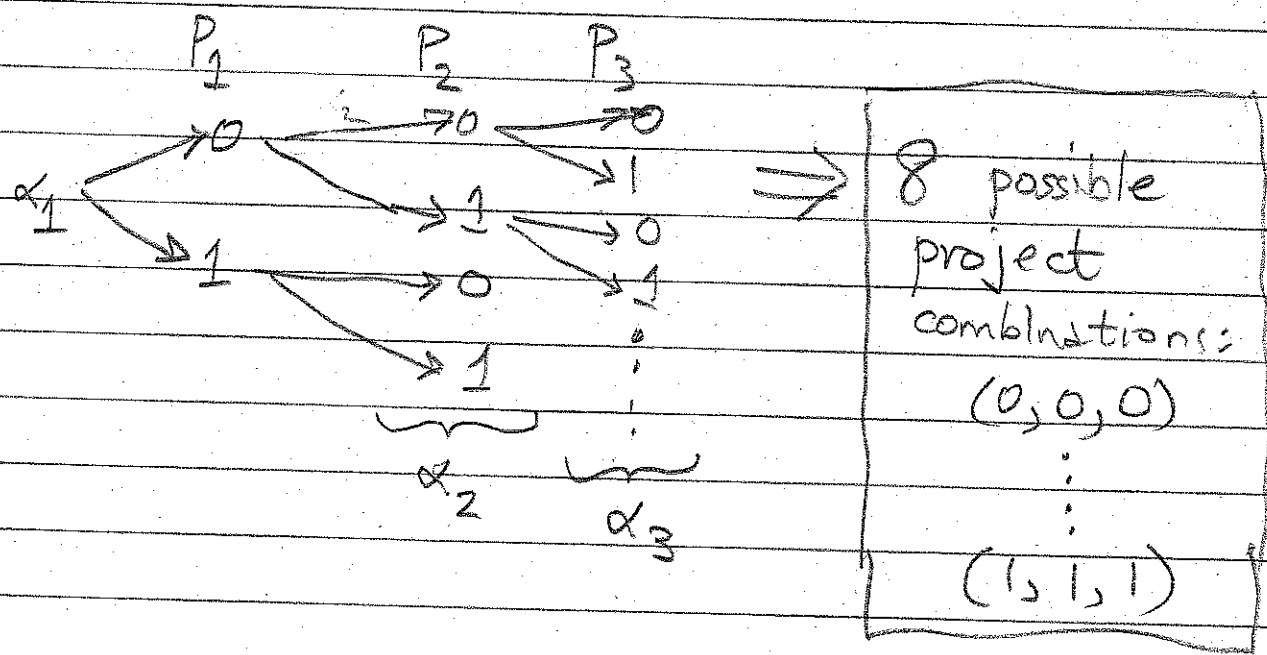 P1 P2 P3
α1 0 0 0
1
1 0
1 0 1
1
α2
α3
⇒ 8 possible
project
combinations:
(0, 0, 0)
(1, 1, 1)